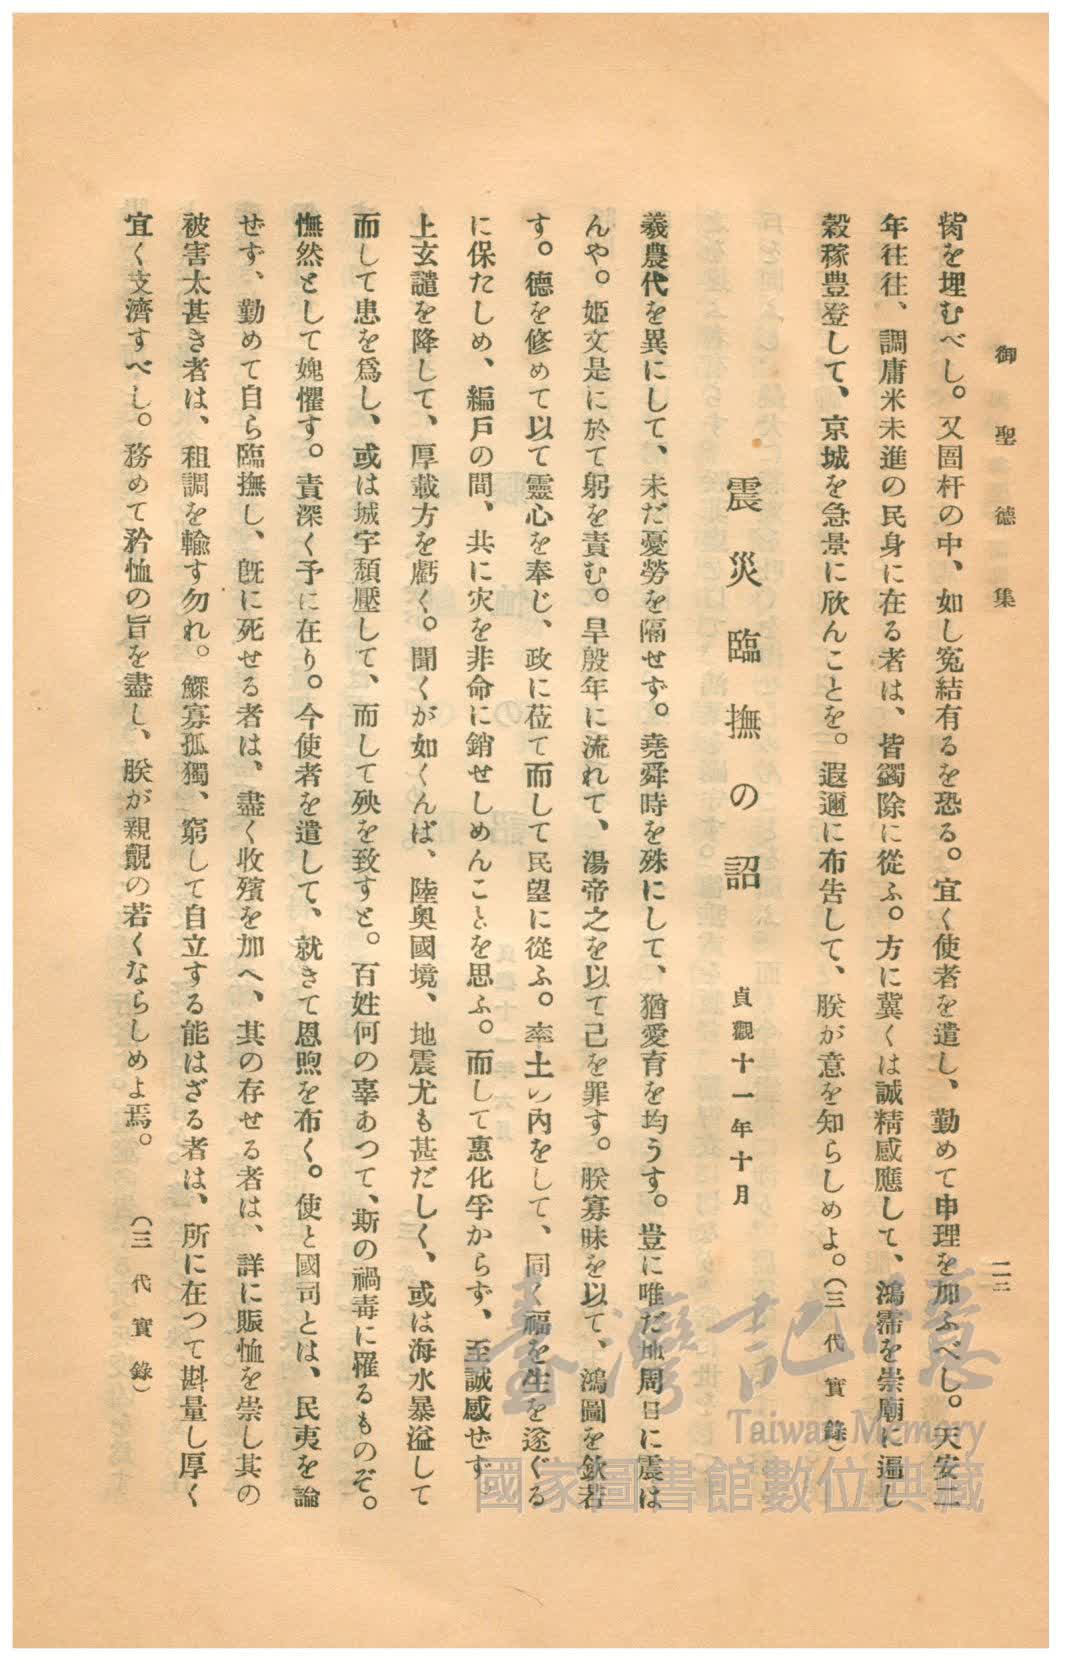 御聖德集
二三
胔を埋むべし。又圄杆の中、如し冤結有るを恐る。宜く使者を遣し、勤めて申理を加ふべし。天安二
年往往、調庸米未進の民身に在る者は、皆蠲除に從ふ。方に冀くは誠精感應して、鴻霈を崇廟に逼し
穀稼豊登して、京城を急景に欣んことを。遐邇に布告して、朕が意を知らしめよ。(三代實錄)
震災臨撫の詔
貞觀十一年十月
羲農代を異にして、未だ憂勞を隔せず。堯舜時を殊にして、猶愛育を均うす。豈に唯だ地周日に震は
んや。姬文是に於て躬を責む。旱殷年に流れて、湯帝之を以て己を罪す。朕寡昧を以て、鴻圖を欽若
す。德を修めて以て靈心を奉じ、政に莅て而して民望に從ふ。率土の內をして、同く福を生を遂ぐる
に保たしめ、編戸の間、共に灾を非命に銷せしめんことを思ふ。而して惠化孚からず、至誠感せず
上玄譴を降して、厚載方を虧く。聞くが如くんば、陸奧國境、地震尤も甚だしく、或は海水暴溢して
而して患を爲し、或は城宇頹壓して、而して殃を致すと。百姓何の辜あつて、斯の禍毒に罹るものぞ。
憮然として媿懼す。責深く予に在り。今使者を遣して、就きて恩煦を布く。使と國司とは、民夷を論
せず、勤めて自ら臨撫し、旣に死せる者は、盡く收殯を加へ、其の存せる者は、詳に賑恤を崇し其の
被害太甚き者は、租調を輸す勿れ。鰥寡孤獨、窮して自立する能はざる者は、所に在つて斟量し厚く
宜く支濟すべし。務めて矜恤の旨を盡し、朕が親覿の若くならしめよ焉。(三代實錄)
臺灣記憶
Taiwan Memory
國家圖書館數位典藏